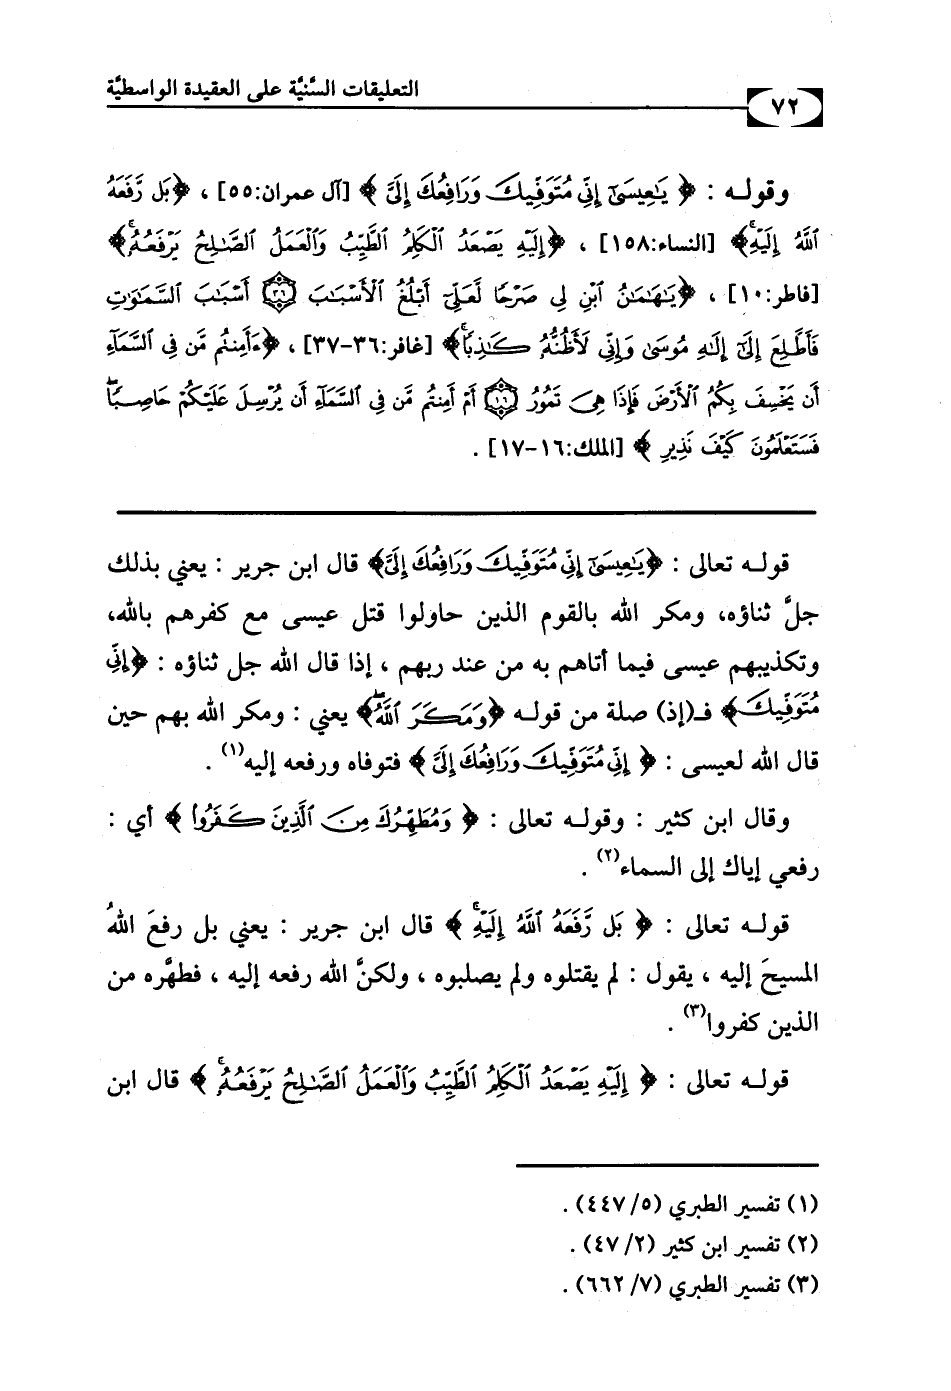 التعليقات السَّنيَّة على العقيدة الواسطيَّة
٧٢
وقوله : ﴿ يَٰعِيسَىٰٓ إِنِّي مُتَوَفِّيكَ وَرَافِعُكَ إِلَيَّ ﴾ [آل عمران:٥٥] ، ﴿بَل رَّفَعَهُ
ٱللَّهُ إِلَيْهِۚ﴾ [النساء:١٥٨] ، ﴿إِلَيْهِ يَصْعَدُ ٱلْكَلِمُ ٱلطَّيِّبُ وَٱلْعَمَلُ ٱلصَّٰلِحُ يَرْفَعُهُۥۚ﴾
[فاطر:١٠] ، ﴿يَٰهَٰمَٰنُ ٱبْنِ لِي صَرْحًا لَّعَلِّيٓ أَبْلُغُ ٱلْأَسْبَٰبَ ۝٣٦ أَسْبَٰبَ ٱلسَّمَٰوَٰتِ
فَأَطَّلِعَ إِلَىٰٓ إِلَٰهِ مُوسَىٰ وَإِنِّي لَأَظُنُّهُۥ كَٰذِبًاۚ﴾ [غافر:٣٦-٣٧] ، ﴿ءَأَمِنتُم مَّن فِي ٱلسَّمَآءِ
أَن يَخْسِفَ بِكُمُ ٱلْأَرْضَ فَإِذَا هِيَ تَمُورُ ۝١٦ أَمْ أَمِنتُم مَّن فِي ٱلسَّمَآءِ أَن يُرْسِلَ عَلَيْكُمْ حَاصِبًاۖ
فَسَتَعْلَمُونَ كَيْفَ نَذِيرِ ﴾ [الملك:١٦-١٧] .
قوله تعالى : ﴿يَٰعِيسَىٰٓ إِنِّي مُتَوَفِّيكَ وَرَافِعُكَ إِلَيَّ﴾ قال ابن جرير : يعني بذلك
جلَّ ثناؤه، ومكر الله بالقوم الذين حاولوا قتل عيسى مع كفرهم بالله،
وتكذيبهم عيسى فيما أتاهم به من عند ربهم ، إذا قال الله جل ثناؤه : ﴿إِنِّي
مُتَوَفِّيكَ﴾ فـ(إذ) صلة من قوله ﴿وَمَكَرَ ٱللَّهُۖ﴾ يعني : ومكر الله بهم حين
قال الله لعيسى : ﴿ إِنِّي مُتَوَفِّيكَ وَرَافِعُكَ إِلَيَّ ﴾ فتوفاه ورفعه إليه(١) .
وقال ابن كثير : وقوله تعالى : ﴿ وَمُطَهِّرُكَ مِنَ ٱلَّذِينَ كَفَرُوا۟ ﴾ أي :
رفعي إياك إلى السماء(٢) .
قوله تعالى : ﴿ بَل رَّفَعَهُ ٱللَّهُ إِلَيْهِۚ ﴾ قال ابن جرير : يعني بل رفعَ اللهُ
المسيحَ إليه ، يقول : لم يقتلوه ولم يصلبوه ، ولكنَّ الله رفعه إليه ، فطهَّره من
الذين كفروا(٣) .
قوله تعالى : ﴿ إِلَيْهِ يَصْعَدُ ٱلْكَلِمُ ٱلطَّيِّبُ وَٱلْعَمَلُ ٱلصَّٰلِحُ يَرْفَعُهُۥۚ ﴾ قال ابن
(١) تفسير الطبري (٥/ ٤٤٧) .
(٢) تفسير ابن كثير (٢/ ٤٧) .
(٣) تفسير الطبري (٧/ ٦٦٢) .